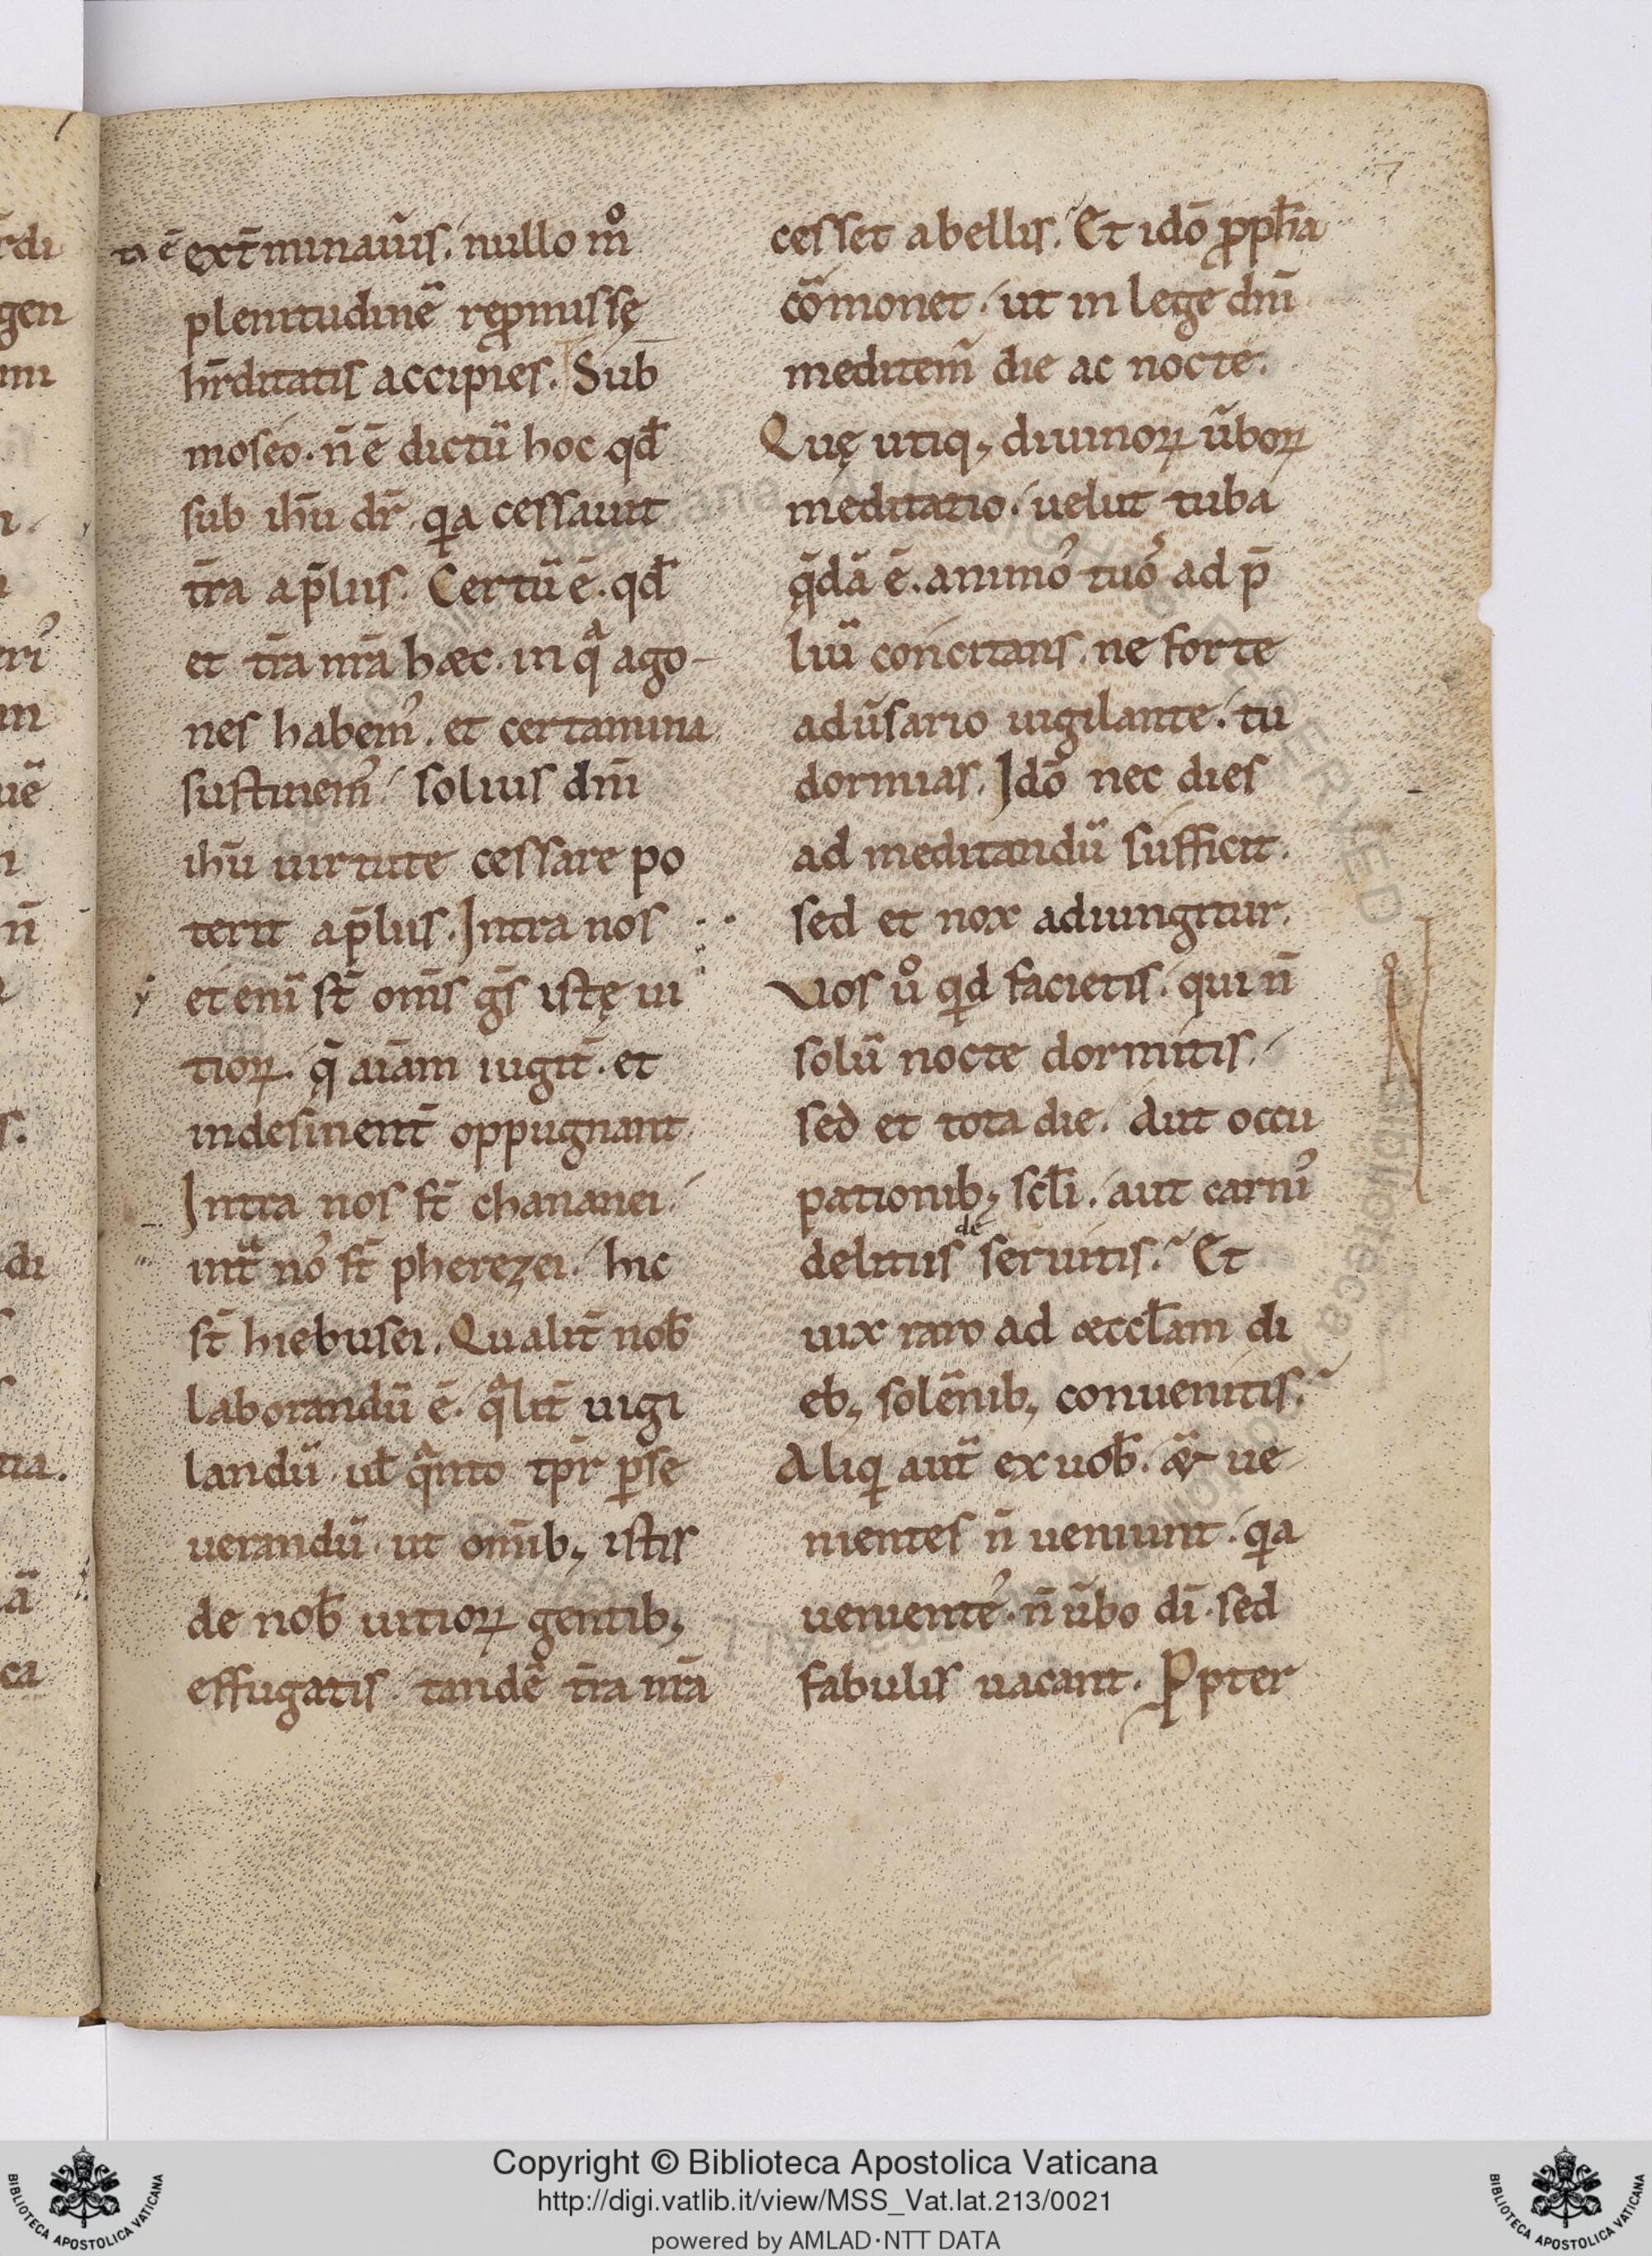 n̄ ē ext̄minau̅is. nullo m̊
plenitudinē rep̱missę
hr̄ditatis accipies. Sub
moseo. n̄ ē dictū hoc qđ
sub ihū dr̄. qa cessauit
tr̄a ap̄liis. Certū ē. qđ
et tr̄a nr̄a hæc. in qͣ ago-
nes habemꝰ. et certamina
sustinemꝰ. solius dn̄i
ihū uirtute cessare po
terit ap̄liis. Intra nos
etenī st̄ om̄s gs̄ istę ui
tioꝝ. q̄ aīam iugit̄. et
indesinent̄ oppugnant
Intra nos st̄ chananei.
intͣ noꝰ st̄ pherezei. hic
st̄ hiebusei. Qualit̄ nob̄
laborandū ē. qͣlit̄ uigi
landū. ul̄ qͣnto tp̄r ꝑse
uerandū. ut om̄ibꝫ istis
de nob̄ uitioꝝ gentibꝫ
effugatis. tandē tr̄a nr̄a
cesset a bellis. Et idō ꝓph̄a
cōmonet. ut in lege dn̄i
meditem̃ die ac nocte.
Quę utiqꝫ diuinoꝝ ūboꝝ
meditatio. uelut tuba
q̄dā ē. animoꝰ tuoꝰ ad p̄
liū concitans. ne forte
adūsario uigilante. tu
dormias. Idō nec dies
ad meditandū sufficit.
sed et nox adiungitur.
Vos ů qd facietis. qui n̄
solū nocte dormitis.
sed et tota die. Aut occu
pationibꝫ scl̄i. aut carnꝰ
delitiis de seruitis. Et
uix raro ad æccl̄am di
ebꝫ solēnibꝫ conuenitis.
Aliqi aut̄ ex uob̄. & ue
nientes n̄ ueniunt. qa
uenienteꝰ. n̄ ūbo dī. sed
fabulis uacant. Ꝓpter
Copyright © Biblioteca Apostolica Vaticana
http://digi.vatlib.it/view/MSS_Vat.lat.213/0021
powered by AMLAD·NTT DATA